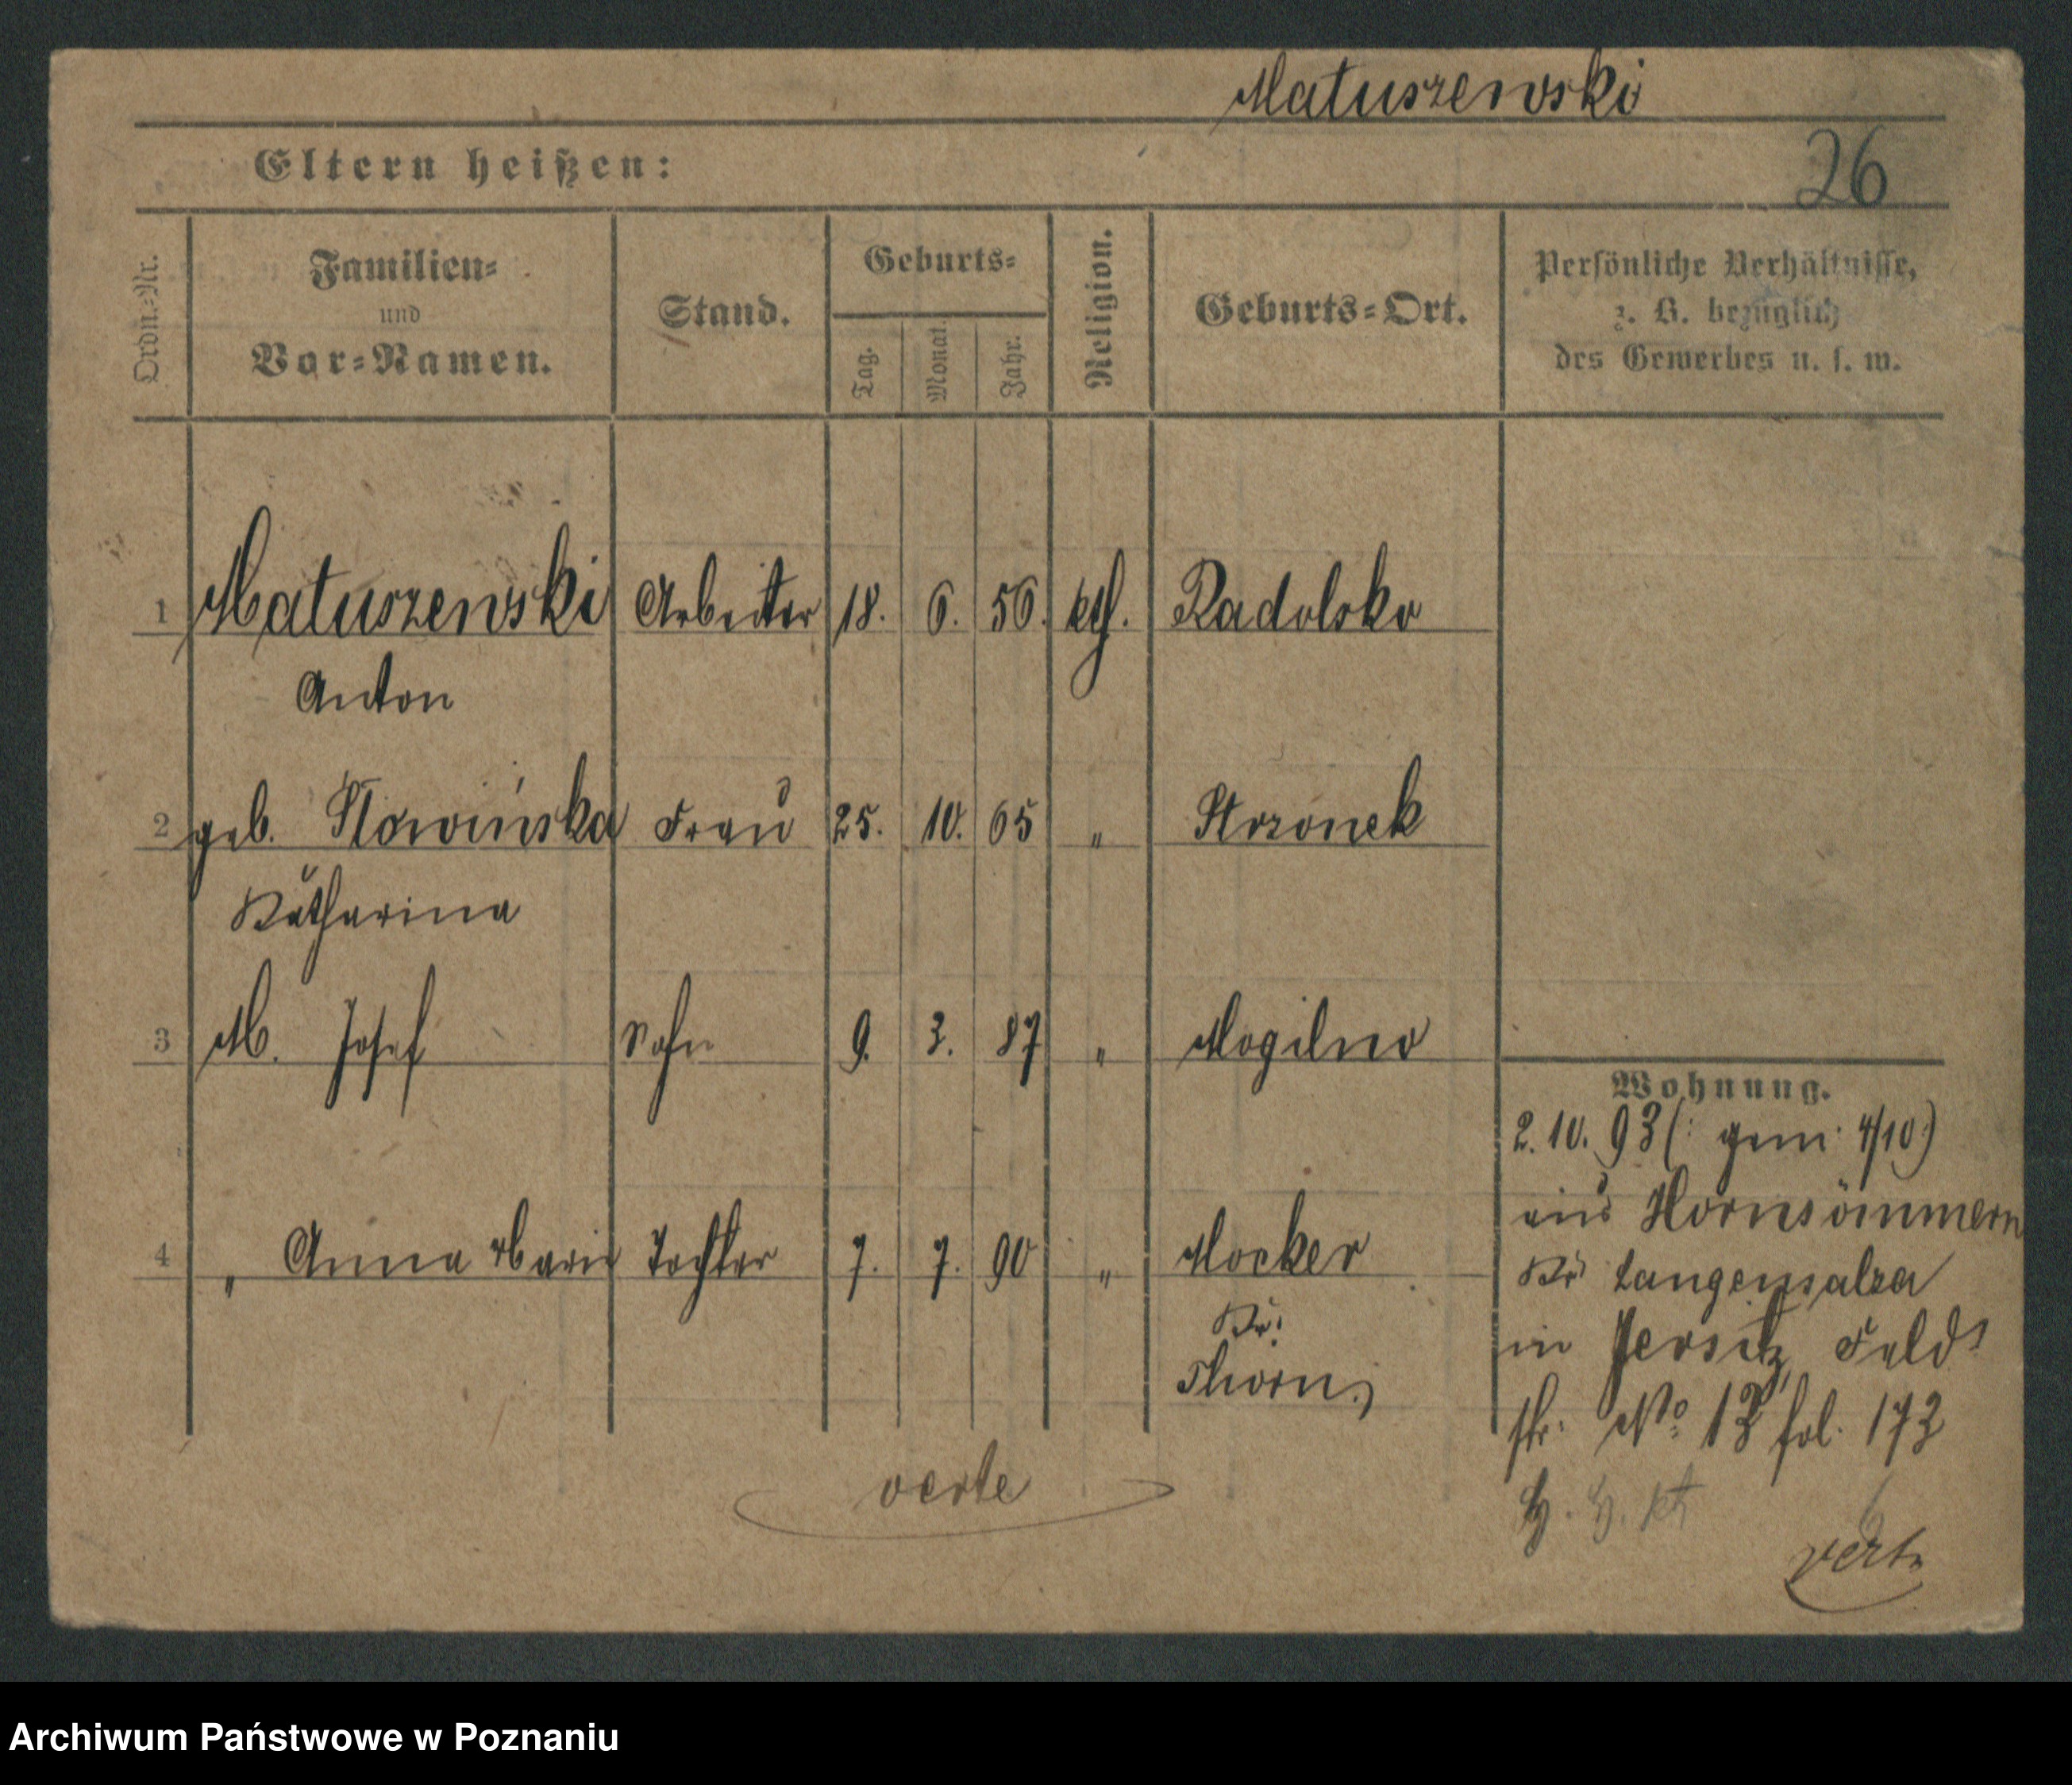 Matuszewski
26
Eltern heißen:
Ordn.-Nr.
Familien-
und
Vor-Namen.
Stand.
Geburts-
Tag.
Monat.
Jahr.
Religion.
Geburts-Ort.
Persönliche Verhältnisse,
z. B. bezüglich
des Gewerbes u. s. w.
1 Matuszewski Arbeiter 18. 6. 56. kth. Radolsko
Anton
2 geb. Słowińska Frau 25. 10. 65 " Strzonek
Katharina
3 M. Josef Sohn 9. 3. 87 " Mogilno
4 " Anna Marie Tochter 7. 7. 90 " Mocker
Kr:
Thorn.
Wohnung.
2. 10. 93 (: gem: 4/10:)
aus Hornsömmern
Kr Langensalza
in Jersitz, Feld-
str. No: 13 fol. 173
verte
verte
Archiwum Państwowe w Poznaniu